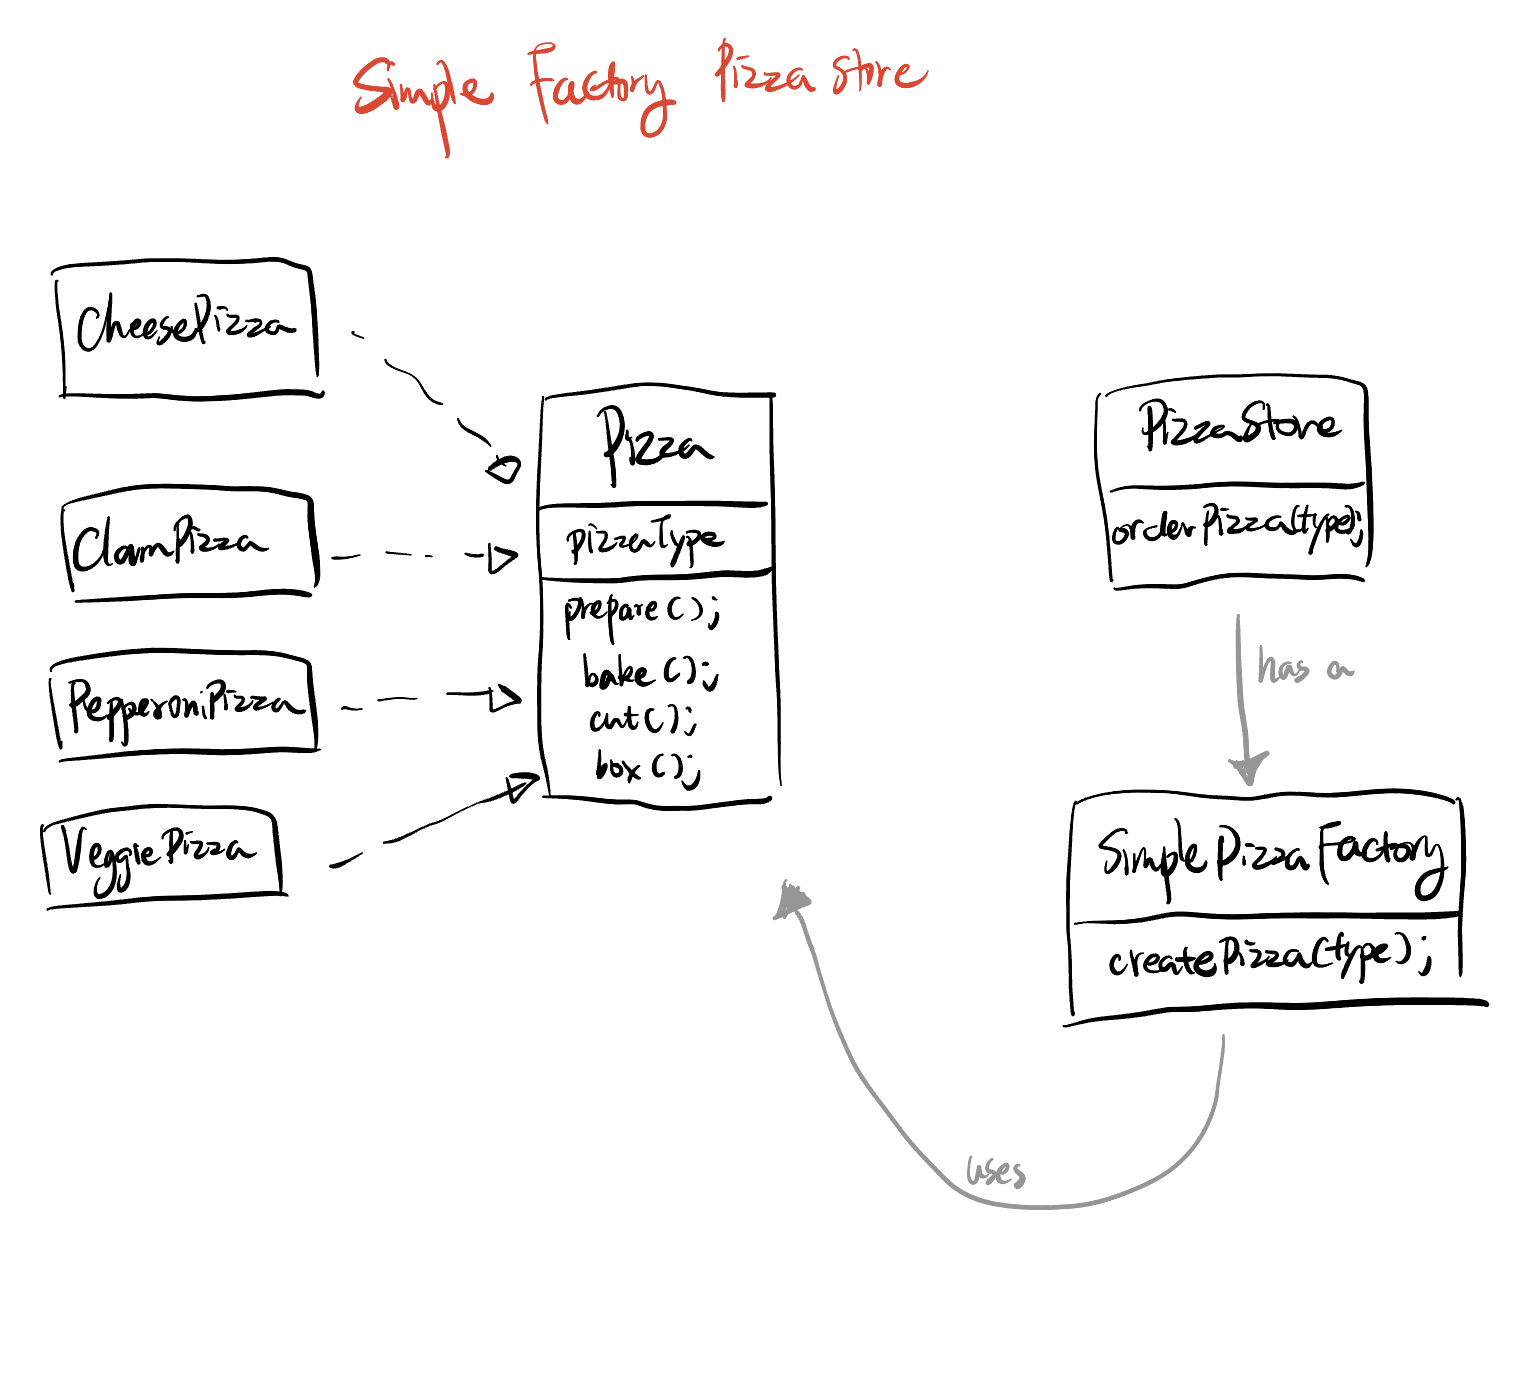 Simple Factory Pizza Store
CheesePizza
ClamPizza
PepperoniPizza
VeggiePizza
Pizza
pizzaType
prepare();
bake();
cut();
box();
PizzaStore
orderPizza(type);
has a
SimplePizzaFactory
createPizza(type);
uses